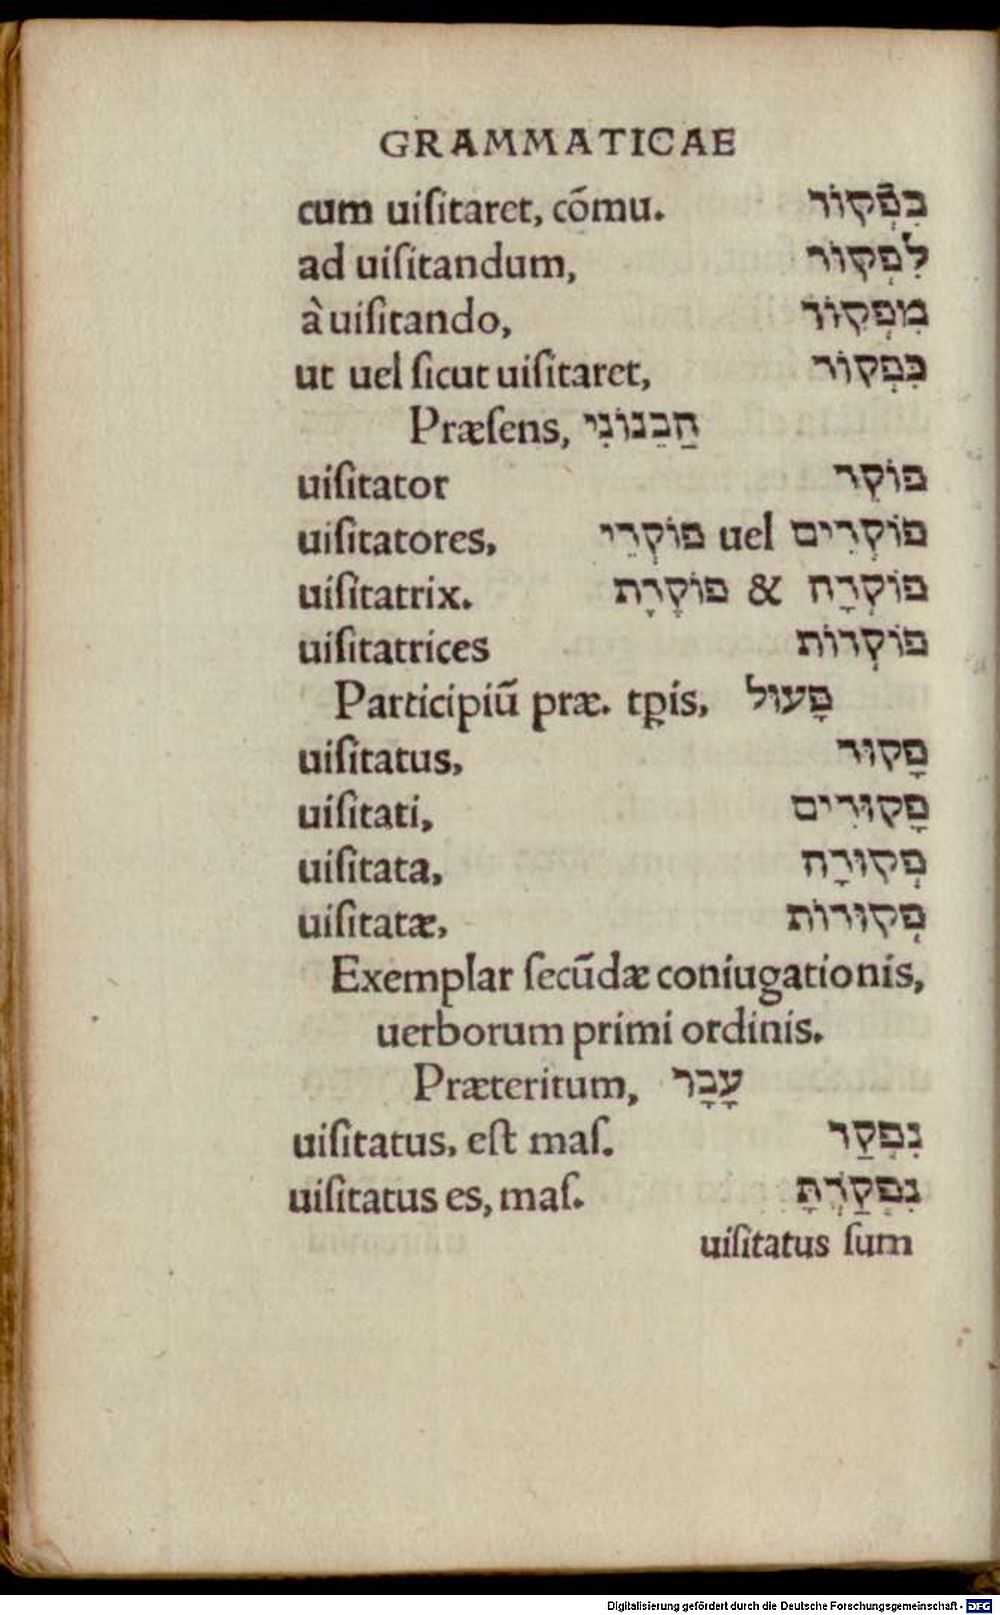 GRAMMATICAE
cum uiſitaret, cōmu. בִּפְקוֹר
ad uiſitandum, לִפְקוֹר
à uiſitando, מִפְקוֹר
ut uel ſicut uiſitaret, כִּפְקוֹר
Præſens, הַבֵנוֹנִי
uiſitator פוֹקֵר
uiſitatores, פוֹקְרִים uel פוֹקְרֵי
uiſitatrix. פוֹקְרָה & פוֹקֶרֶת
uiſitatrices פוֹקְרוֹת
Participiū præ. tꝑis, פָּעוּל
uiſitatus, פָקוּר
uiſitati, פָקוּרִים
uiſitata, פְקוּרָה
uiſitatæ, פְקוּרוֹת
Exemplar ſecūdæ coniugationis,
uerborum primi ordinis.
Præteritum, עָבָר
uiſitatus, eſt maſ. נִפְקַר
uiſitatus es, maſ. נִפְקַרְתָּ
uiſitatus ſum
Digitalisierung gefördert durch die Deutsche Forschungsgemeinschaft - DFG